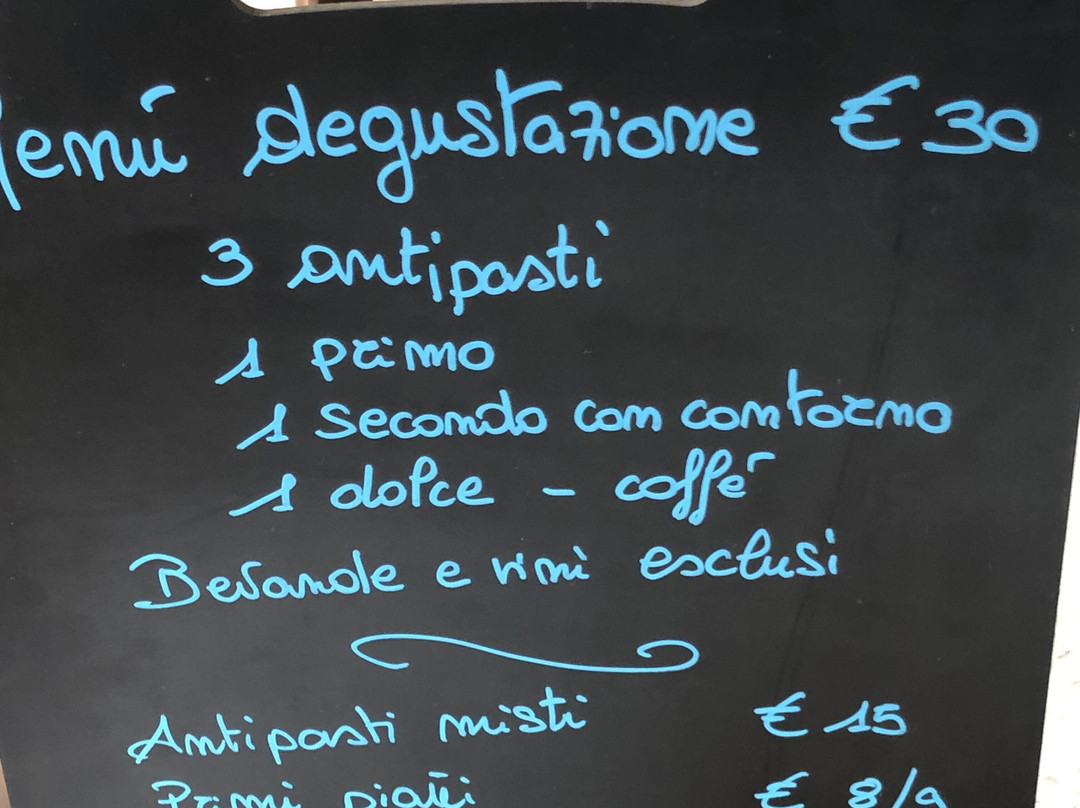 Menú degustazione € 30
3 antipasti
1 primo
1 secondo con contorno
1 dolce - caffé
Bevande e vini esclusi
Antipasti misti € 15
Primi piatti € 8/9